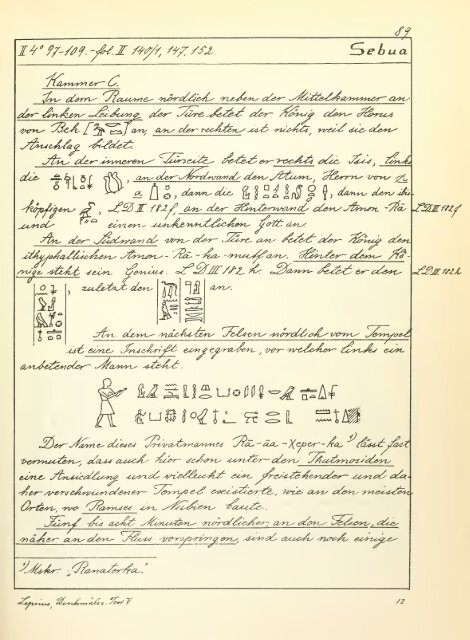 89
II 4° 97-109. - fol. II 140/1, 147. 152
Sebua
Kammer C.
In dem Raume nördlich neben der Mittelkammer an
der linken Leibung der Türe betet der König den Horus
von Beh [ ] an, an der rechten ist nichts, weil sie den
Anschlag bildet.
An der inneren Türseite betet er rechts die Isis, links
die , an der Nordwand den Atum, Herrn von
, dann die , dann den
köpfigen , LD III 182 f, an der Hinterwand den Amon-Râ
LD III 182 f
und einen unkenntlichen Gott an.
An der Südwand von der Türe an betet der König den
ithyphallischen Amon-Râ-ka-mutf an. Hinter dem Kö-
nige steht sein Genius. LD III 182 h. Dann betet er den
LD III 182 h
, zuletzt den an.
An dem nächsten Felsen nördlich vom Tempel
ist eine Inschrift eingegraben, vor welcher links ein
anbetender Mann steht.
Der Name dieses Privatmannes Râ-āa-χeper-ka ¹) lässt fast
vermuten, dass auch hier schon unter den Thutmosiden
eine Ansiedlung und vielleicht ein freistehender und da-
her verschwundener Tempel existierte, wie an den meisten
Orten, wo Ramses in Nubien baute.
Fünf bis acht Minuten nördlicher, an den Felsen, die
näher an den Fluss vorspringen, sind auch noch einige
¹) Mskr. „Ranaterka“.
Lepsius, Denkmäler. Text V
12